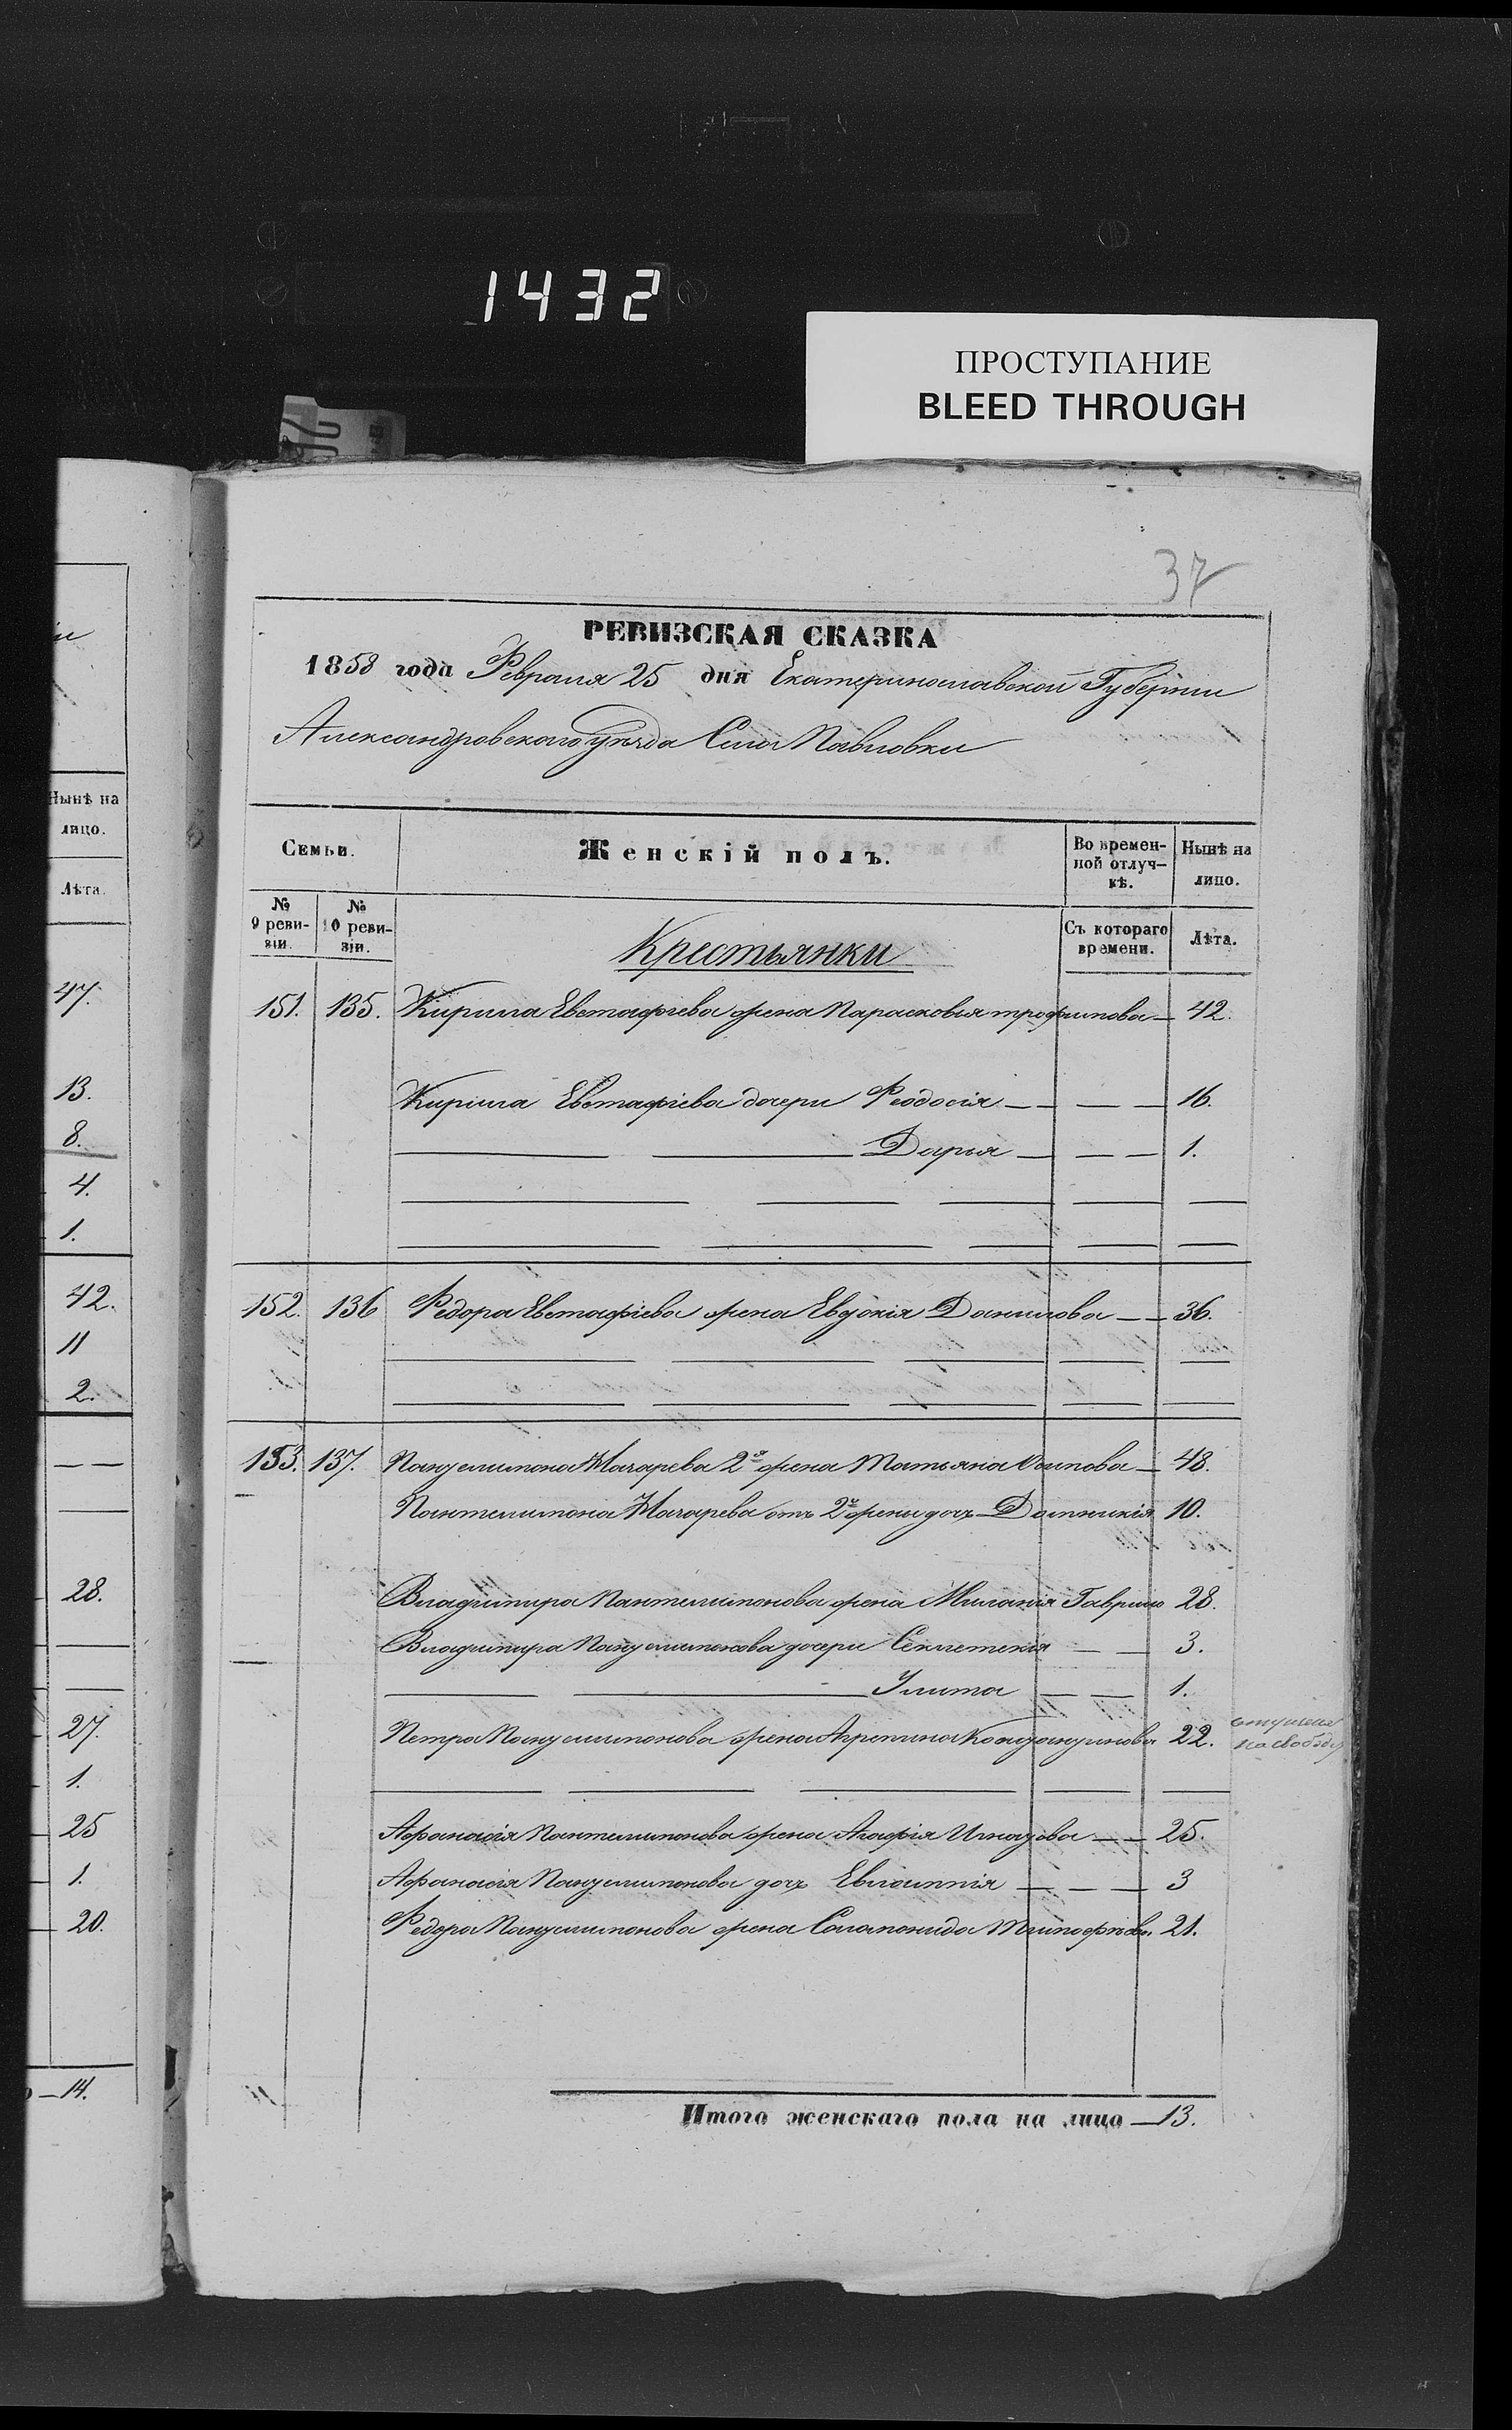 1432
ПРОСТУПАНИЕ
BLEED THROUGH
37
РЕВИЗСКАЯ СКАЗКА
1858 года Февраля 25 дня Екатеринославской Губерніи
Александровскаго Уѣзда Села Павловки
Семьи.
Женскій полъ.
Во времен-
ной отлуч-
кѣ.
Нынѣ на
лицо.
№
9 реви-
зіи.
№
10 реви-
зіи.
Съ котораго
времени.
Лѣта.
Крестьянки
151. 135. Кирила Евстафіева жена Парасковья трофимова — 42.
Кирила Евстафіева дочери Феодосія — — — — 16.
Дарья — — — 1.
152. 136 Федора Евстафіева жена Евдокія Данилова — — 36.
153. 137. Пантелимона Макарева 2я жена Татьяна Осипова — 48.
Пантелимона Макарева отъ 2й жены дочь Домникія 10.
Владимира Пантелимонова жена Миланія Гаврило 28.
Владимира Пантелимонова дочери Секлетекія — — 3.
Улита — — 1.
Петра Пантелимонова жена Агрепина 22.
на свободу
Афанасія Пантелимонова жена Агафія Игнатова — — 25.
Афанасія Пантелимонова дочь Евлампія — — — 3
Федора Пантелимонова жена Саламонида Тимофѣева 21.
Итого женскаго пола на лицо — 13.
Нынѣ на
лицо.
Лѣта.
47.
13.
8.
4.
1.
42.
11
2.
28.
27.
1.
25
1.
20.
14.